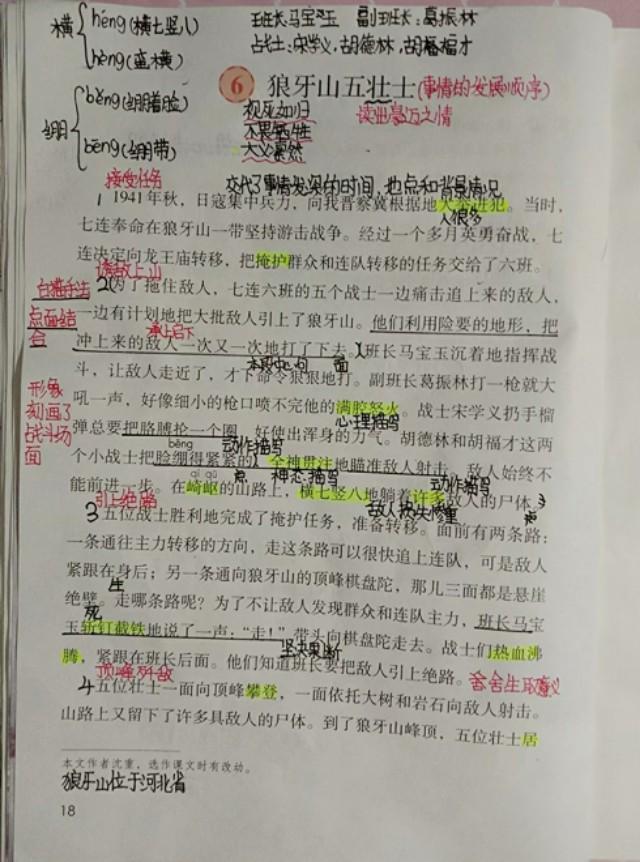 横 héng(横七竖八)
hèng(蛮横)
班长马宝玉 副班长：葛振林
战士：宋学义，胡德林，胡福才
6 狼牙山五壮士(事情的发展顺序)
绷 běng(绷着脸)
bēng(绷带)
视死如归
不畏牺牲
大义凛然
读出豪迈之情
接受任务
交代了事情发生的时间，地点和背景情况
1 1941年秋，日寇集中兵力，向我晋察冀根据地大举进犯。当时，
人很多
七连奉命在狼牙山一带坚持游击战争。经过一个多月英勇奋战，七
连决定向龙王庙转移，把掩护群众和连队转移的任务交给了六班。
诱敌上山
白描手法
2 为了拖住敌人，七连六班的五个战士一边痛击追上来的敌人，
点面结合
一边有计划地把大批敌人引上了狼牙山。他们利用险要的地形，把
承上启下
冲上来的敌人一次又一次地打了下去。班长马宝玉沉着地指挥战
本段中心句 面
斗，让敌人走近了，才下命令狠狠地打。副班长葛振林打一枪就大
形象刻画了战斗场面
吼一声，好像细小的枪口喷不完他的满腔怒火。战士宋学义扔手榴
心理描写
弹总要把胳膊抡一个圈，好使出浑身的力气。胡德林和胡福才这两
bēng 动作描写
个小战士把脸绷得紧紧的，全神贯注地瞄准敌人射击。敌人始终不
qí qū 点 神态描写 动作描写
能前进一步。在崎岖的山路上，横七竖八地躺着许多敌人的尸体。
引上绝路
敌人损失惨重
3 五位战士胜利地完成了掩护任务，准备转移。面前有两条路：
一条通往主力转移的方向，走这条路可以很快追上连队，可是敌人
紧跟在身后；另一条通向狼牙山的顶峰棋盘陀，那儿三面都是悬崖
生
绝壁。走哪条路呢？为了不让敌人发现群众和连队主力，班长马宝
死
玉斩钉截铁地说了一声：“走！”带头向棋盘陀走去。战士们热血沸
坚决果断
腾，紧跟在班长后面。他们知道班长要把敌人引上绝路。
顶峰歼敌
舍生取义
4 五位壮士一面向顶峰攀登，一面依托大树和岩石向敌人射击。
山路上又留下了许多具敌人的尸体。到了狼牙山峰顶，五位壮士居
本文作者沈重，选作课文时有改动。
狼牙山位于河北省
18